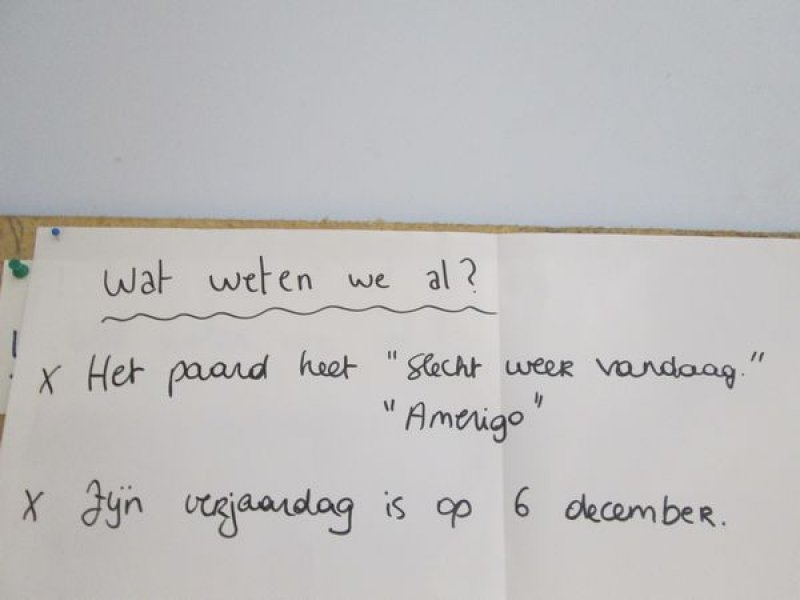 Wat weten we al?
X Het paard heet "Slecht weer vandaag."
"Amerigo"
X Zijn verjaardag is op 6 december.